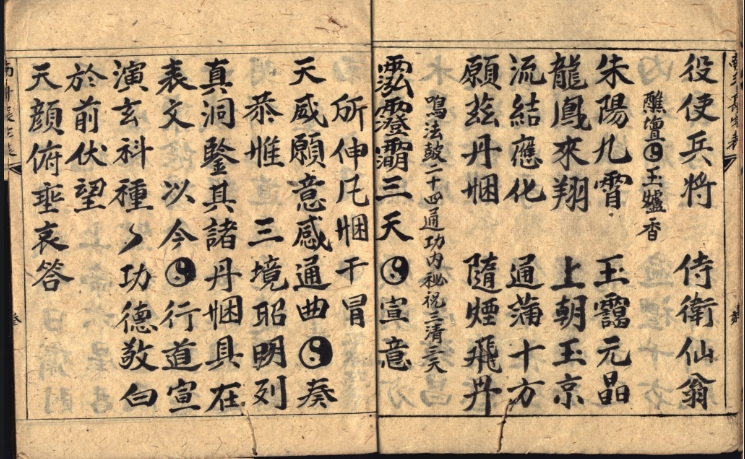 役使兵將　侍衛仙翁
醮壇☯玉爐香
朱陽九霄　玉靄元晶
龍鳳來翔　上朝玉京
流結應化　通蒲十方
願玆丹悃　隨煙飛升
鳴法鼓二十四通功內秘祝三清三天
三天☯宣意
所伸凡悃干冒
天威願意感通曲☯奏
恭惟　三境昭明列
真洞鑒其諸丹悃具在
表文　以今☯行道宣
演玄科種々功德敬白
於前伏望
天顏俯垂哀答